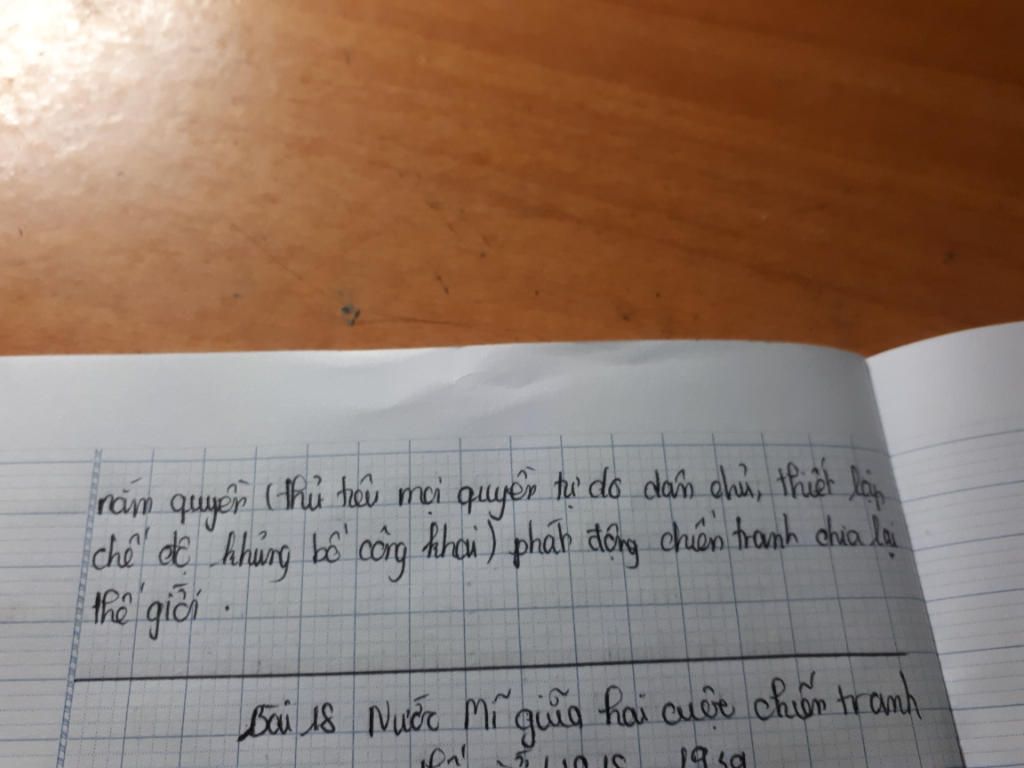 nắm quyền (thủ tiêu mọi quyền tự do dân chủ, thiết lập
chế độ khủng bố công khai) phát động chiến tranh chia lại
thế giới.
Bài 18 Nước Mĩ giữa hai cuộc chiến tranh